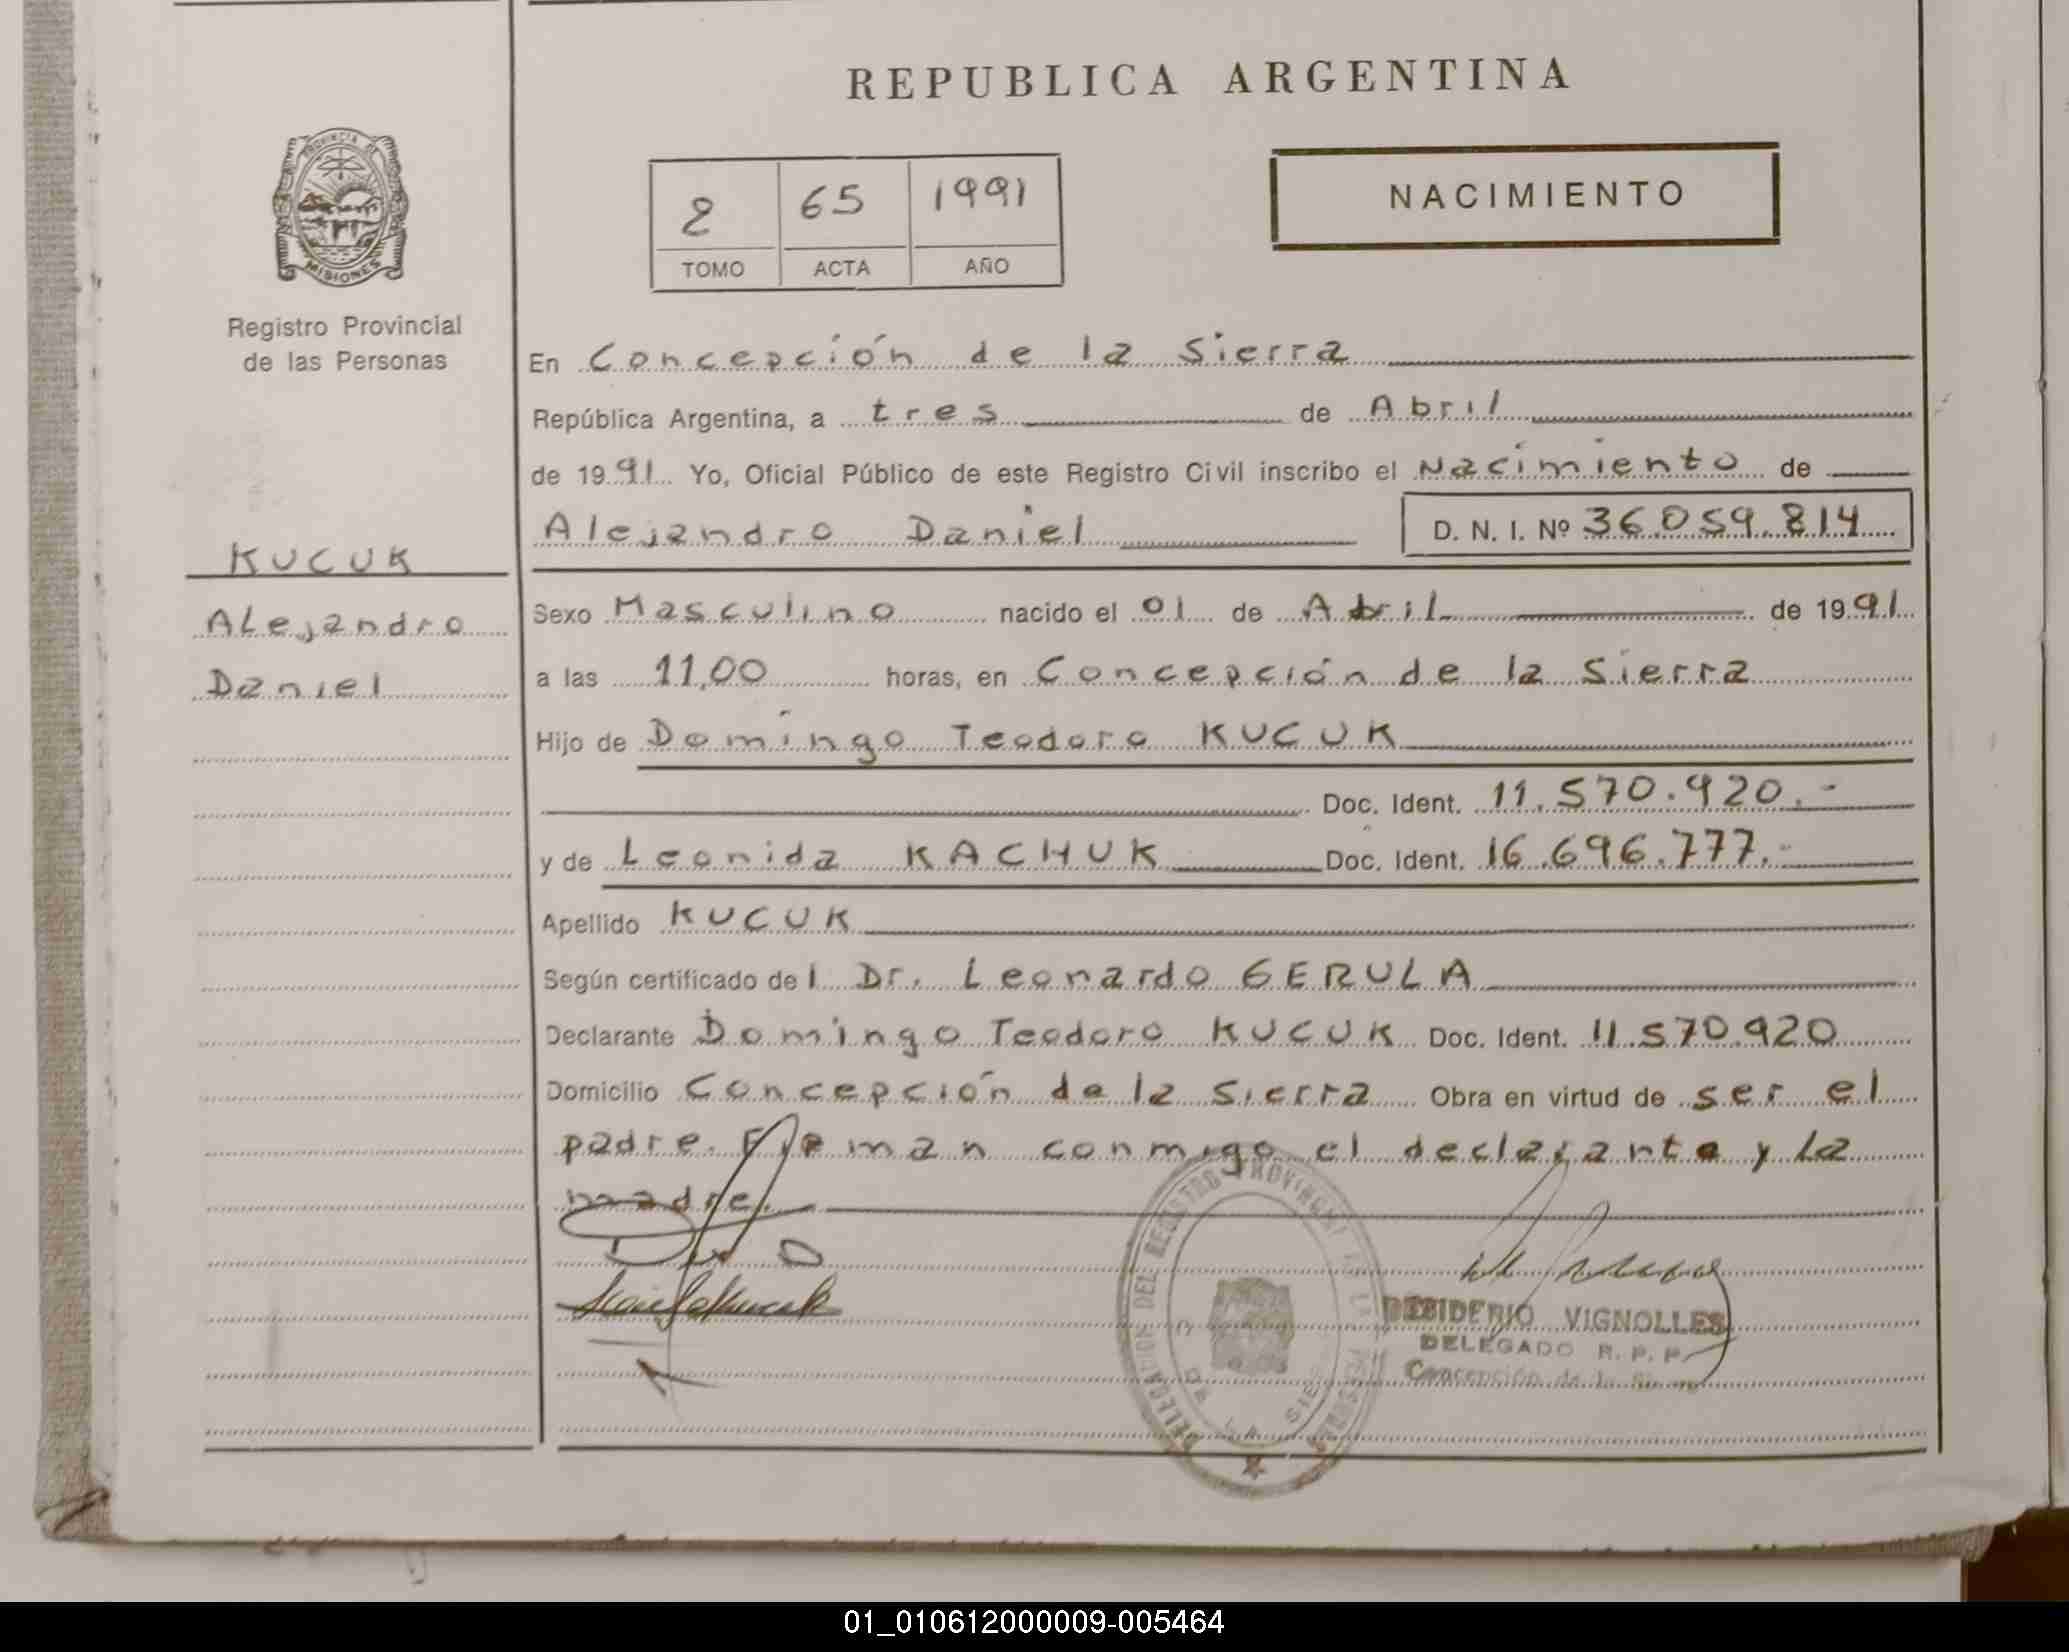 REPUBLICA ARGENTINA
PROVINCIA DE
MISIONES
Registro Provincial
de las Personas
2 65 1991
TOMO ACTA AÑO
NACIMIENTO
En Concepción de la Sierra
República Argentina, a tres de Abril
de 1991 Yo, Oficial Público de este Registro Civil inscribo el Nacimiento de
Alejandro Daniel D. N. I. Nº 36.059.814
KUCUK
Alejandro
Daniel
Sexo Masculino nacido el 01 de Abril de 1991
a las 11,00 horas, en Concepción de la Sierra
Hijo de Domingo Teodoro KUCUK
Doc. Ident. 11.570.920.-
y de Leonida KACHUK Doc. Ident. 16.696.777.-
Apellido KUCUK
Según certificado del Dr. Leonardo GERULA
Declarante Domingo Teodoro KUCUK Doc. Ident. 11.570.920
Domicilio Concepción de la Sierra Obra en virtud de ser el
padre. Firman conmigo el declarante y la
madre.
DELEGACION DEL REGISTRO PROVINCIAL DE LAS PERSONAS
DE LA SIERRA
DESIDERIO VIGNOLLES
DELEGADO R. P. P.
Concepción de la Sierra
01_010612000009-005464